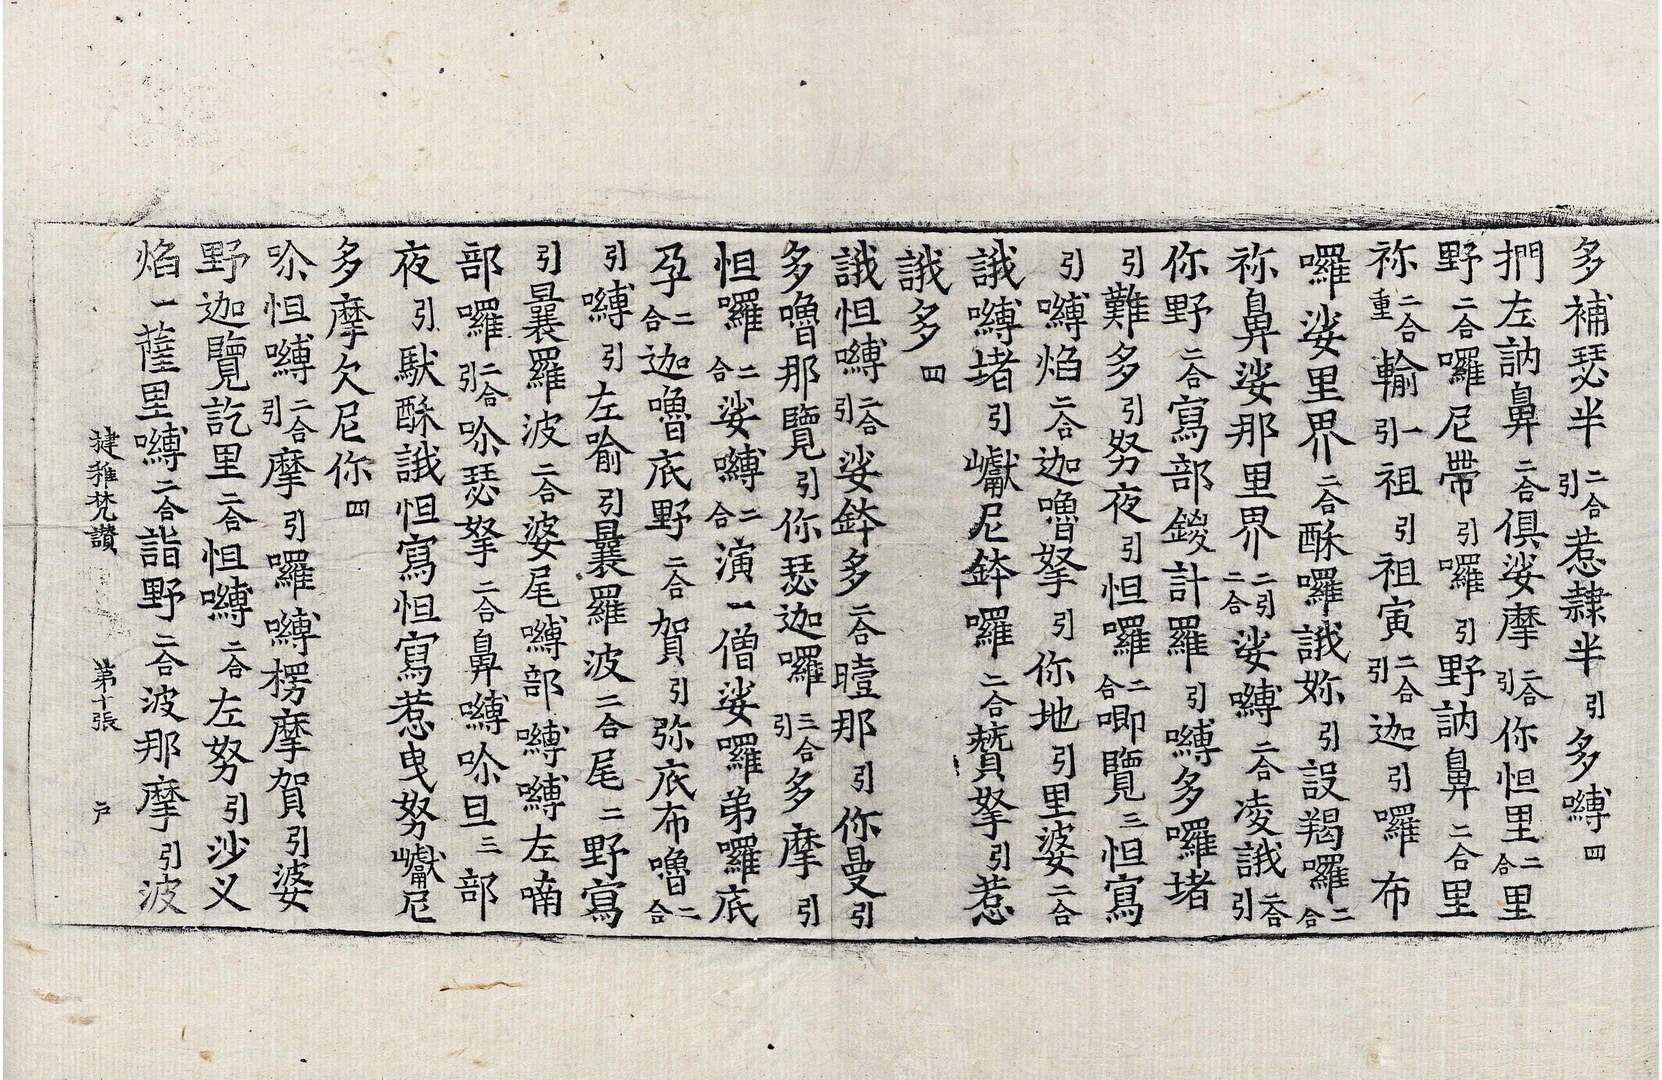 多補瑟半二合引惹隷半引多嚩四
捫左訥鼻二合俱娑摩二合引你怛里二合里
野二合囉尼帶引囉引野訥鼻二合里
祢二合重輸一引祖引祖寅二合引迦引囉布
囉娑里界二合酥囉誐妳引設羯囉二合
祢鼻娑那里界二引二合娑嚩二合凌誐二合引
你野二合寫部鍐計羅引嚩多囉堵
引難多引努夜引怛囉二合唧覽三怛寫
引嚩焰二合迦嚕拏引你地引里婆二合
誐嚩堵引巘尼鉢囉二合贊拏引惹
誐多四
誐怛嚩二合引娑鉢多二合曀那引你曼引
多嚕那覽引你瑟迦囉三合引多摩引
怛囉二合娑嚩二合演一僧娑囉弟囉底
孕二合迦嚕底野二合賀引弥底布嚕二合
引嚩引左喻引曩羅波二合尾二野寫
引曩羅波二合婆尾嚩部嚩嚩左喃
部囉二合引吩瑟拏二合鼻嚩吩旦三部
夜引馱酥誐怛寫怛寫惹曳努巘尼
多摩欠尼你四
吩怛嚩二合引摩引囉嚩楞摩賀引婆
野迦覽訖里二合怛嚩二合左努引沙义
焰一薩里嚩二合詣野二合波那摩引波
揵稚梵讚 第十張 户